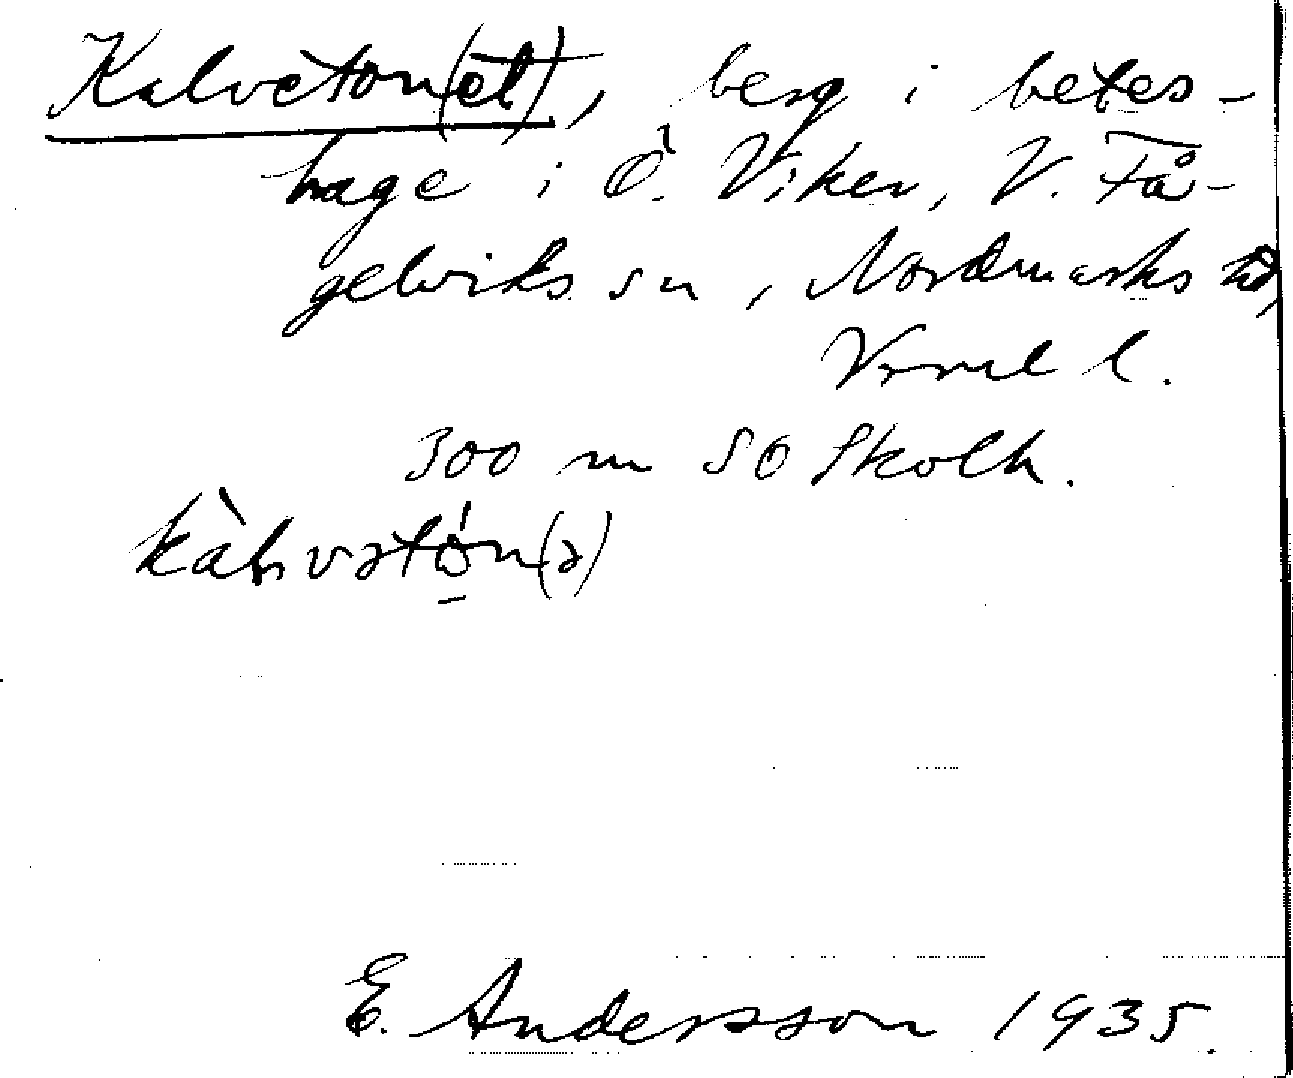 Kalveton(et), berg i betes-
hage i Ö. Viker, V. Få-
gelviks sn, Nordmarks hd,
Vrml l.
300 m SO Skolh.
E. Andersson 1935.